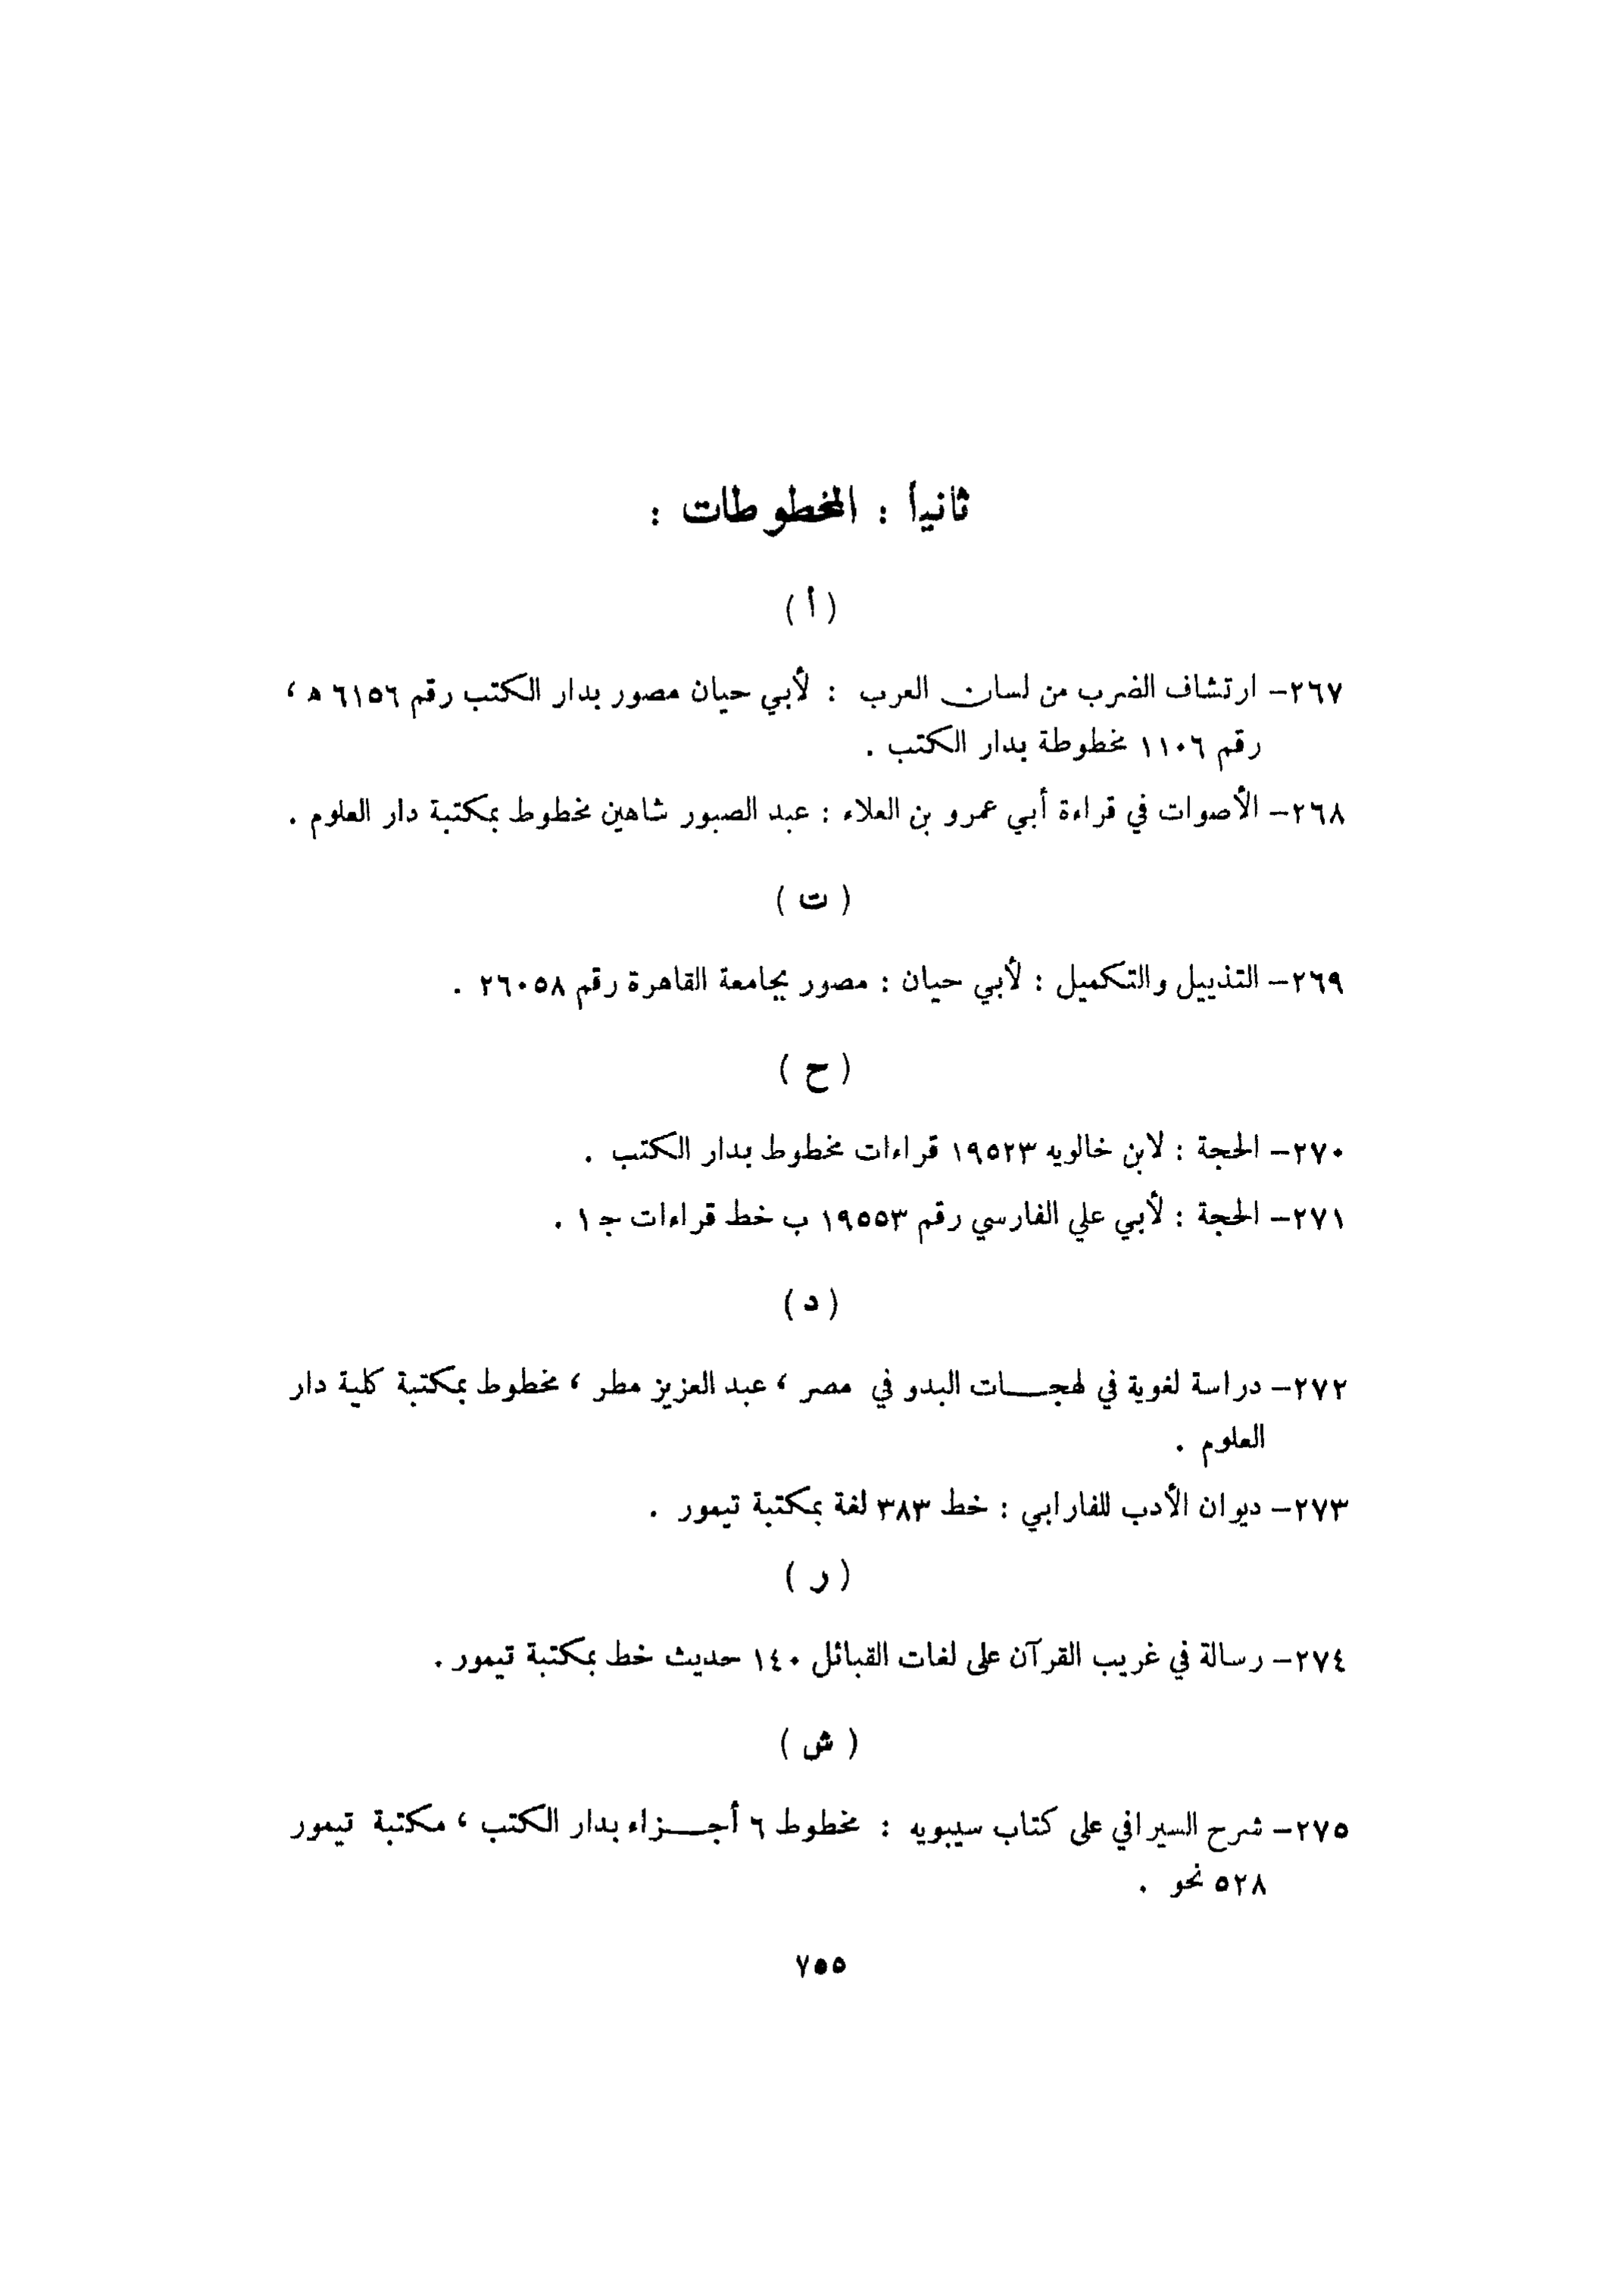 ثانياً : المخطوطات :
( أ )
٢٦٧– ارتشاف الضرب من لسان العرب : لأبي حيان مصور بدار الكتب رقم ٦١٥٦ ﻫ ،
رقم ١١٠٦ مخطوطة بدار الكتب .
٢٦٨– الأصوات في قراءة أبي عمرو بن العلاء : عبد الصبور شاهين مخطوط بمكتبة دار العلوم .
( ت )
٢٦٩– التذييل والتكميل : لأبي حيان : مصور بجامعة القاهرة رقم ٢٦٠٥٨ .
( ح )
٢٧٠– الحجة : لابن خالويه ١٩٥٢٣ قراءات مخطوط بدار الكتب .
٢٧١– الحجة : لأبي علي الفارسي رقم ١٩٥٥٣ ب خط قراءات ج ١ .
( د )
٢٧٢– دراسة لغوية في لهجــات البدو في مصر ، عبد العزيز مطر ، مخطوط بمكتبة كلية دار
العلوم .
٢٧٣– ديوان الأدب للفارابي : خط ٣٨٣ لغة بمكتبة تيمور .
( ر )
٢٧٤– رسالة في غريب القرآن على لغات القبائل ١٤٠ حديث خط بمكتبة تيمور .
( ش )
٢٧٥– شرح السيرافي على كتاب سيبويه : مخطوط ٦ أجــزاء بدار الكتب ، مكتبة تيمور
٥٢٨ نحو .
٧٥٥